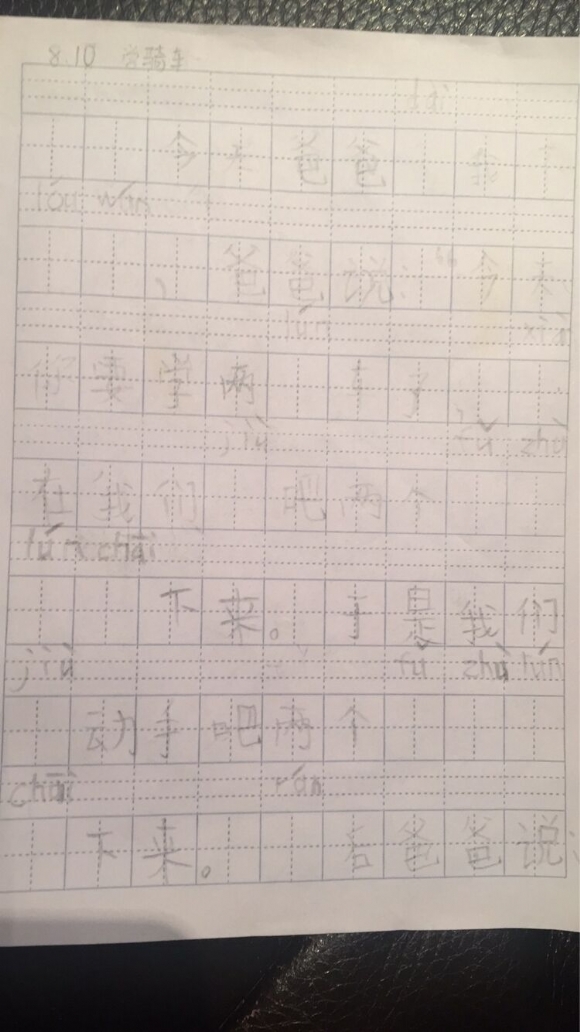 8.10 学骑车
dai
今天爸爸 我下
lóu wán
，爸爸说：“今天
lún xiàn
你要学两 车了
jiù fǔ zhù
在我们 吧两个
lún chāi
下来。于是我们
jiù fǔ zhù lún
动手吧两个
chāi rán
下来。 后爸爸说：